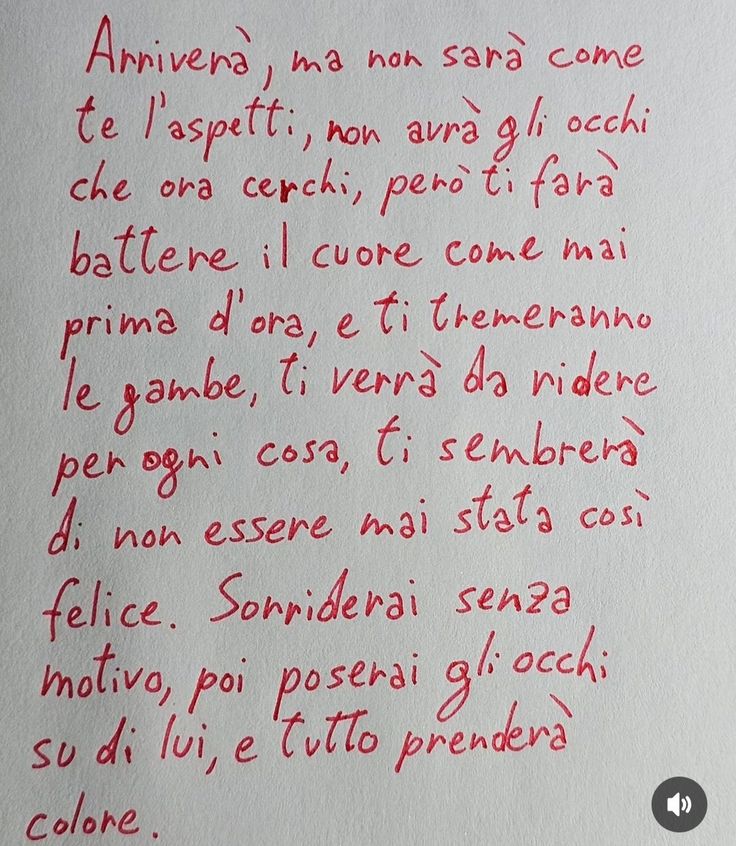 Arriverà, ma non sarà come
te l'aspetti, non avrà gli occhi
che ora cerchi, però ti farà
battere il cuore come mai
prima d'ora, e ti tremeranno
le gambe, ti verrà da ridere
per ogni cosa, ti sembrerà
di non essere mai stata così
felice. Sorriderai senza
motivo, poi poserai gli occhi
su di lui, e tutto prenderà
colore.